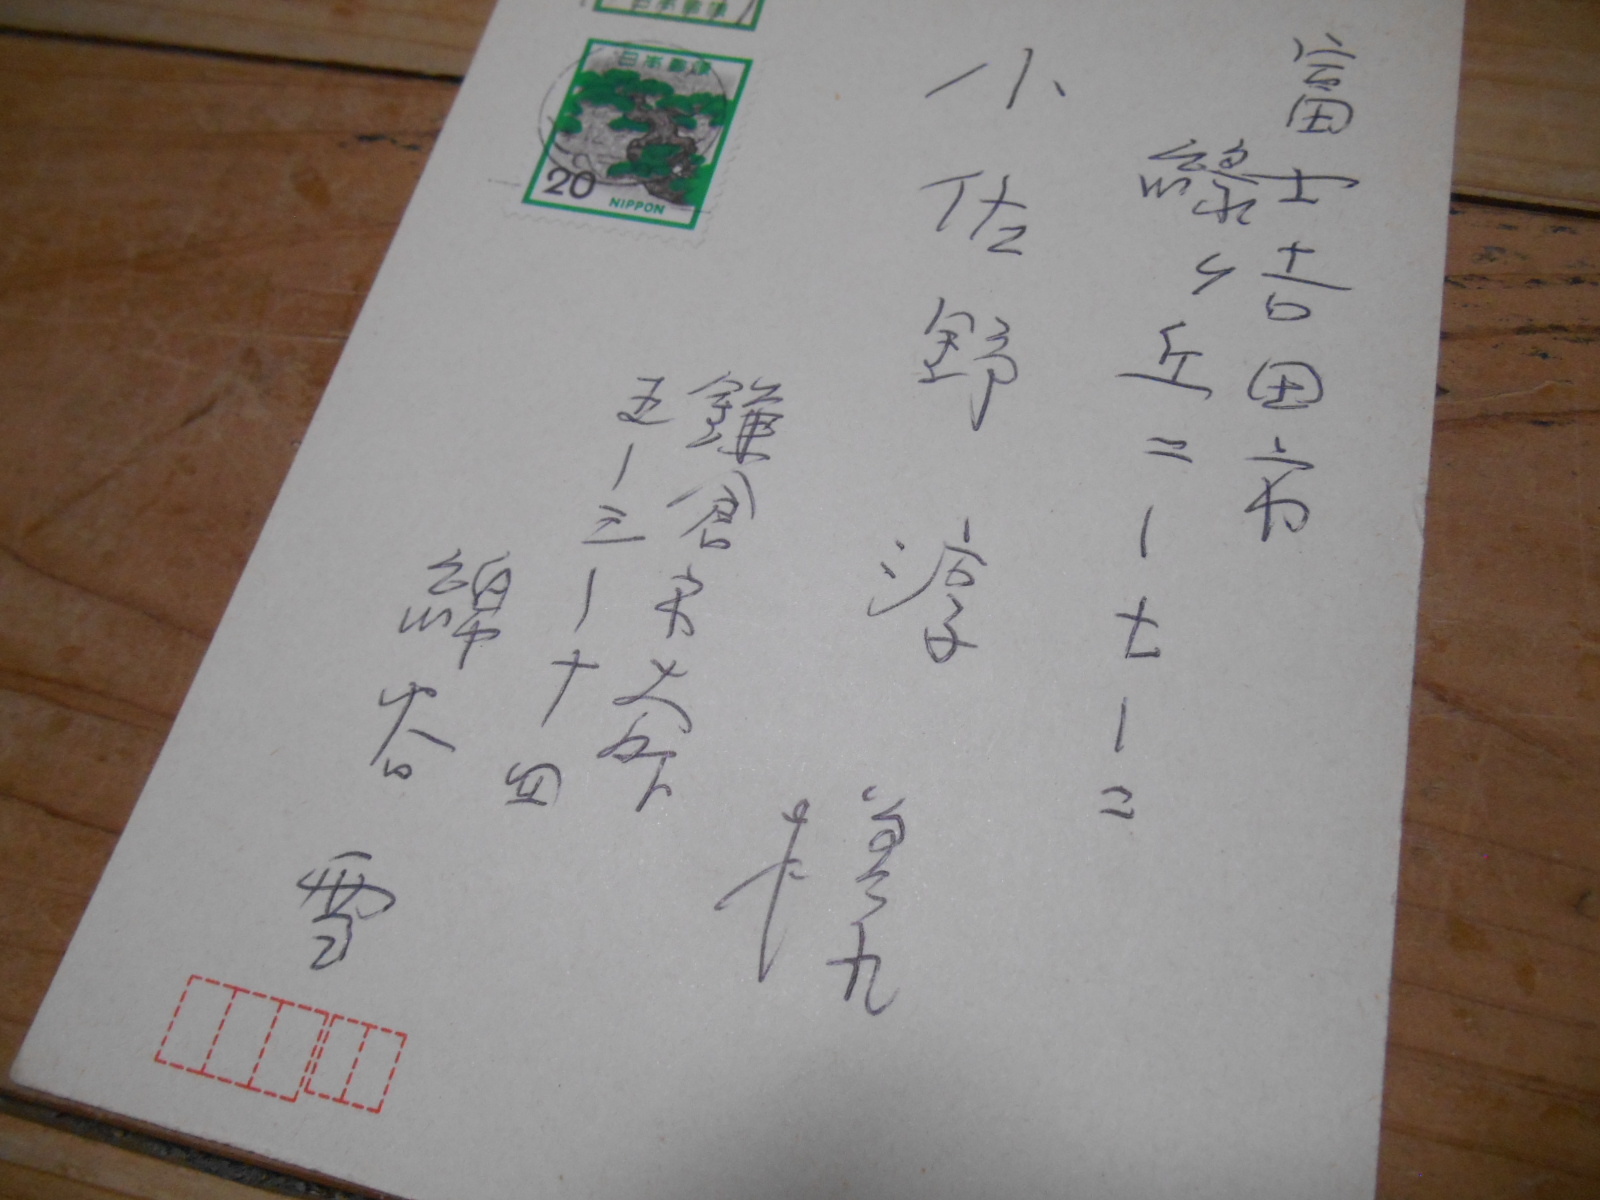 富士吉田市
緑ヶ丘二ー七ー二
小佐野 淳 様
鎌倉市大
五ー三ー十四
綿谷 雪
日本郵便
日本郵便
20
NIPPON